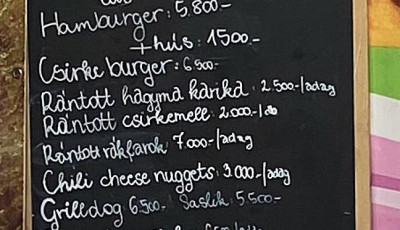 Hamburger: 5.800-
+hús: 1500.-
Csirke burger: 6.500-
Rántott hagyma karika: 2.500-/adag
Rántott csirkemell: 2.000-/db
Rántott rákfarok: 7.000-/adag
Chili cheese nuggets: 3.000-/adag
Grilldog 6.500- Saslik: 5.500-